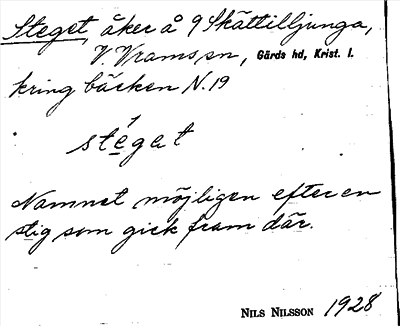 Steget, åker å 9 Skättilljunga,
V. Vrams sn, Gärds hd, Krist. l.
kring bäcken N. 19
stéget
Namnet möjligen efter en
stig som gick fram där.
NILS NILSSON 1928